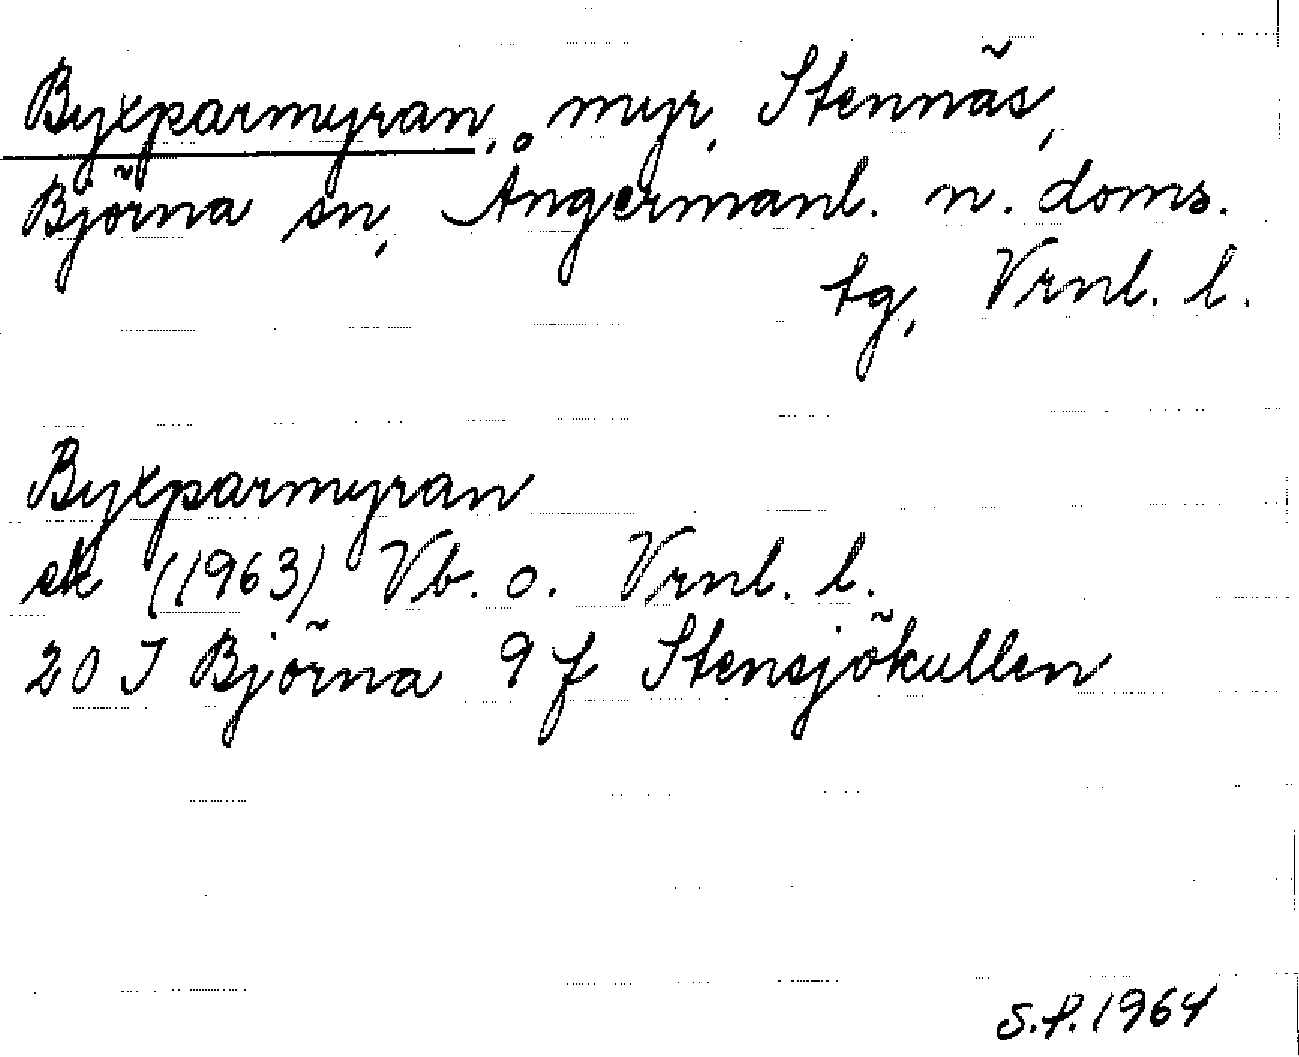 Byxparmyran, myr, Stennäs,
Björna sn, Ångermanl. n. doms.
tg, Vrnl. l.
Byxparmyran
ek (1963) Vb. o. Vrnl. l.
20 J Björna 9 f Stensjökullen
S.P. 1964